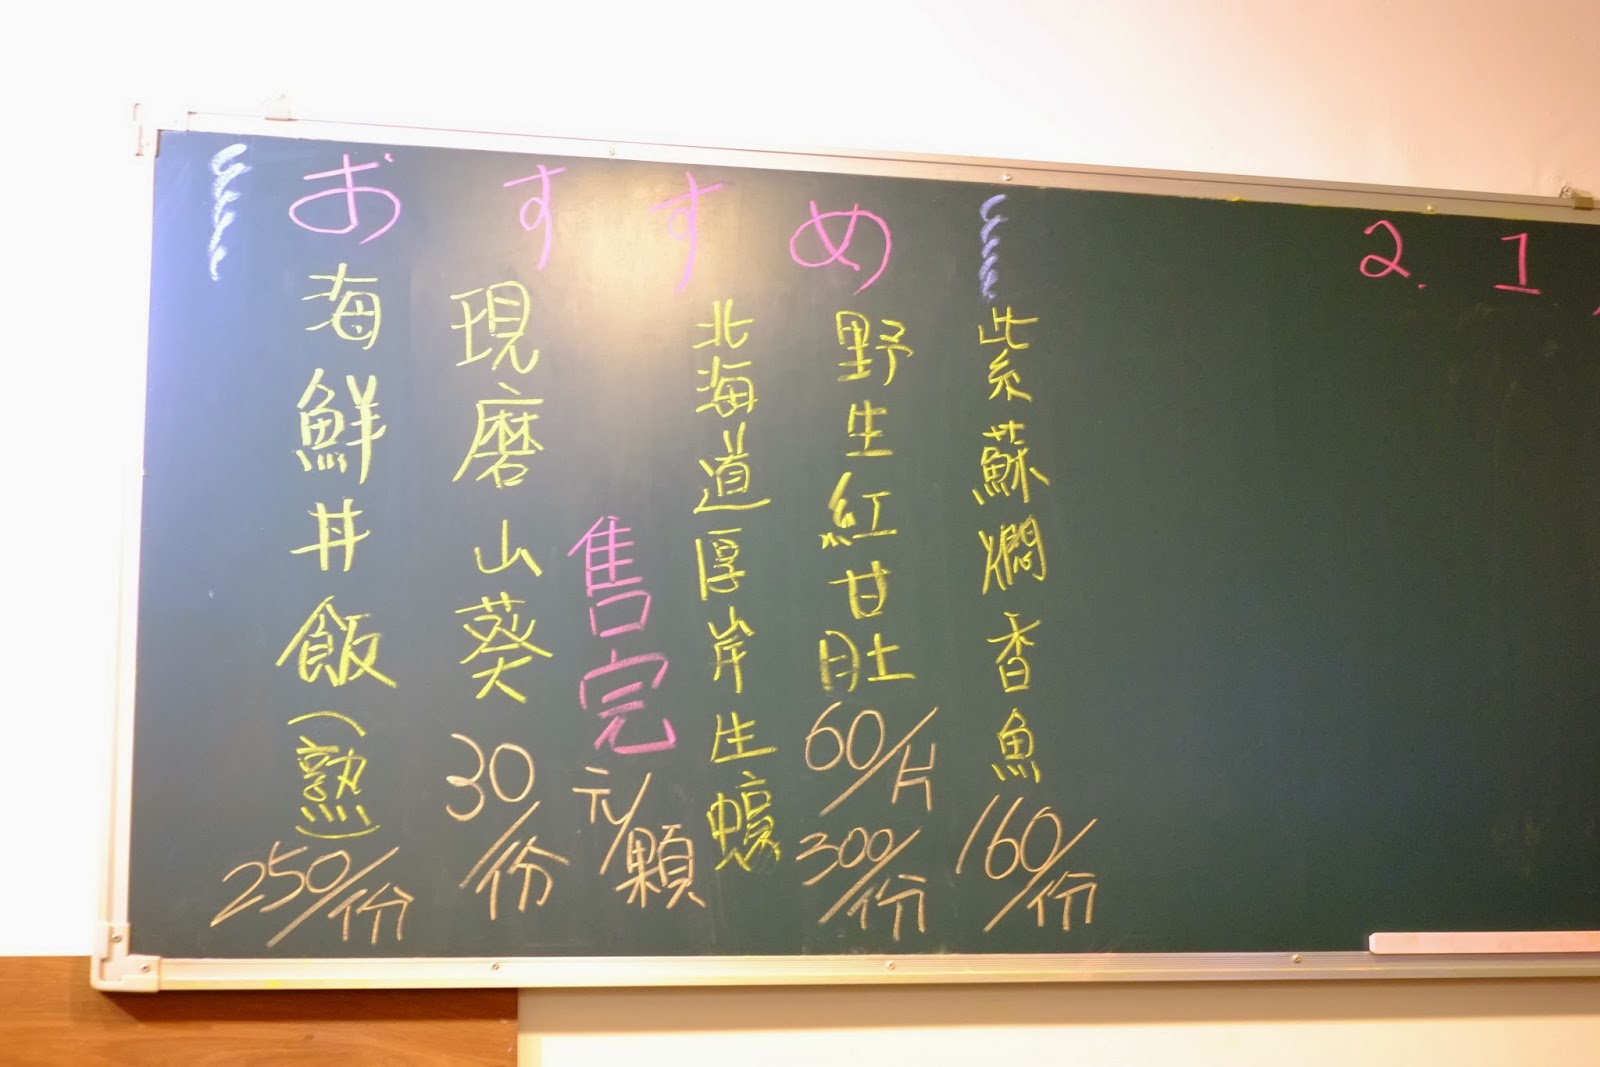 おすすめ
2. 1
紫蘇燜香魚
160/份
野生紅甘肚
60/片
300/份
北海道厚岸生蠔
售完
元/顆
現磨山葵
30/份
海鮮丼飯(熟)
250/份